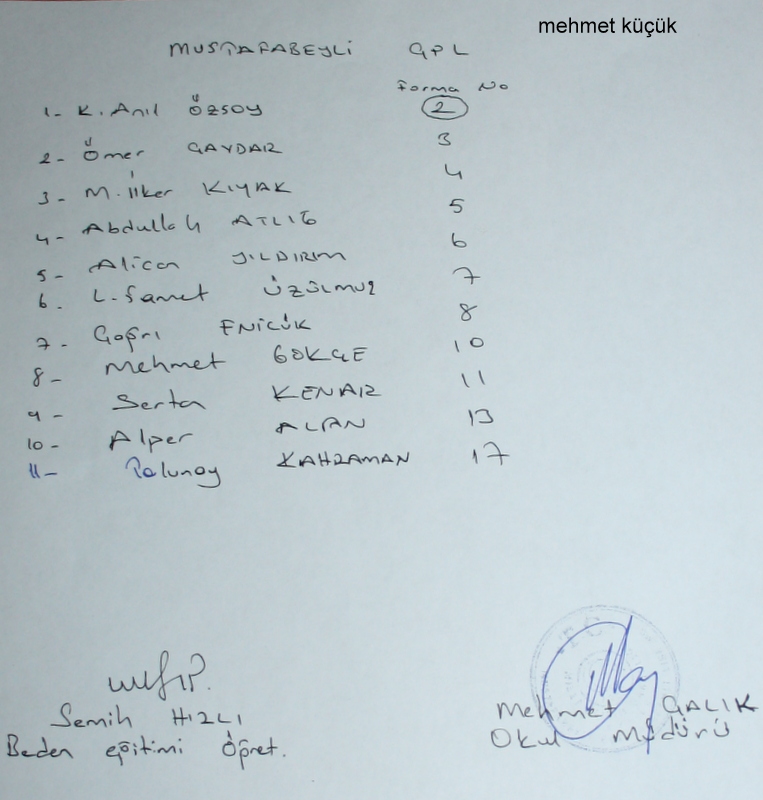 mehmet küçük
MUSTAFABEYLİ ÇPL
Forma No
1- K. Anıl ÖZSOY 2
2- Ömer ÇAYDAR 3
3- M. İlker KIYAK 4
4- Abdullah ATLIĞ 5
5- Alican YILDIRIM 6
6- L. Samet ÜZÜLMÜŞ 7
7- Çağrı ENİCÜK 8
8- Mehmet GÖKÇE 10
9- Sertan KENAR 11
10- Alper ALPAN 13
11- Tolunay KAHRAMAN 17
Semih HIZLI
Beden eğitimi Öğret.
Mehmet ÇALIK
Okul Müdürü